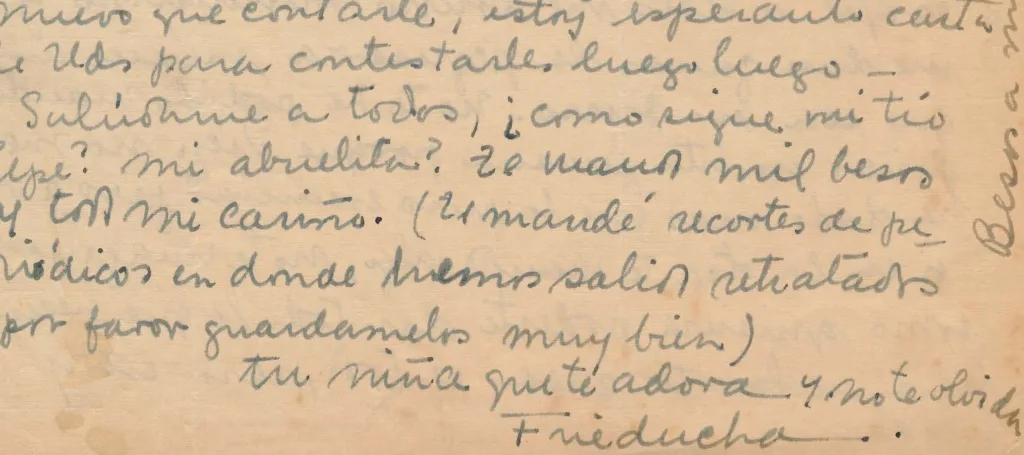 nuevo que contarle, estoy esperando carta
de Uds para contestarles luego luego —
Salúdame a todos, ¿como sigue mi tío
Pepe? mi abuelita? Te mando mil besos
y todo mi cariño. (Te mandé recortes de pe-
riódicos en donde hemos salido retratados
por favor guardamelos muy bien)
tu niña que te adora y no te olvida
Frieducha...
Besos a